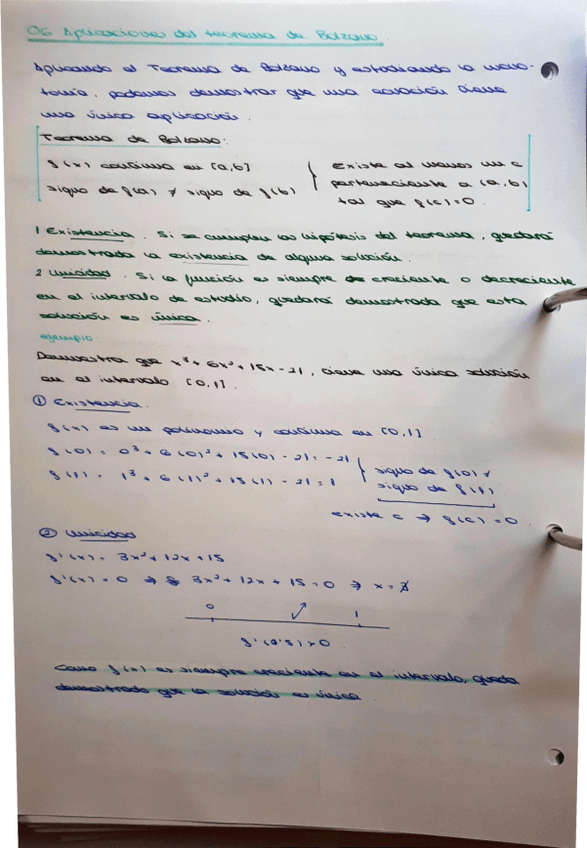 06 Aplicaciones del teorema de Bolzano.
Aplicando el Teorema de Bolzano y estudiando la mono-
tonía, podemos demostrar que una ecuación tiene
una única aplicación.
Teorema de Bolzano:
f(x) continua en [a,b]
signo de f(a) ≠ signo de f(b)
Existe al menos un c
perteneciente a (a,b)
tal que f(c)=0.
1 Existencia. Si se cumplen las hipótesis del teorema, quedará
demostrada la existencia de alguna solución.
2 Unicidad. Si la función es siempre creciente o decreciente
en el intervalo de estudio, quedará demostrada que esta
solución es única.
ejemplo
Demuestra que x³+6x²+15x-21, tiene una única solución
en el intervalo [0,1].
① Existencia.
f(x) es un polinomio y continua en [0,1]
f(0) = 0³+6(0)²+15(0)-21=-21
f(1) = 1³+6(1)²+15(1)-21=1
signo de f(0) ≠
signo de f(1)
existe c → f(c)=0.
② Unicidad
f'(x) = 3x²+12x+15
f'(x) = 0 ⇒ 3x²+12x+15=0 ⇒ x=∄
0 1
f'(0'5)>0
Como f(x) es siempre creciente en el intervalo, queda
demostrado que la solución es única